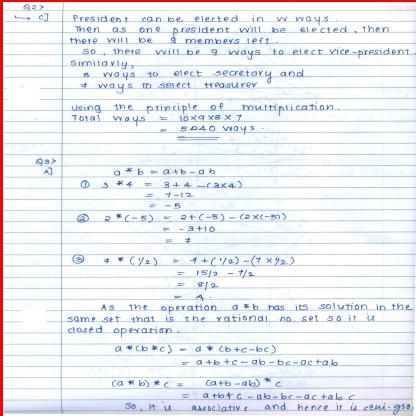 Q2>
→ C] President can be elected in w ways.
Then as one president will be elected, then
there will be 9 members left.
So, there will be 9 ways to elect vice-president.
Similarly,
8 ways to elect secretary and
7 ways to select treasurer
using the principle of multiplication.
Total ways = 10x9x8x7
= 5040 ways.
Q3>
A] a * b = a+b-ab
① 3 * 4 = 3+4-(3x4)
= 7-12
= -5
② 2 * (-5) = 2+(-5)-(2x(-5))
= -3+10
= 7
③ 7 * (1/2) = 7+(1/2)-(7 x 1/2)
= 15/2 - 7/2
= 8/2
= 4.
As the operation a*b has its solution in the
same set that is the rational no. set so it is
closed operation.
a * (b * c) = a * (b+c-bc)
= a+b+c-ab-bc-ac+ab
(a * b) * c = (a+b-ab) * c
= a+b+c-ab-bc-ac+ab c
So, it is associative and hence it is semi-gro